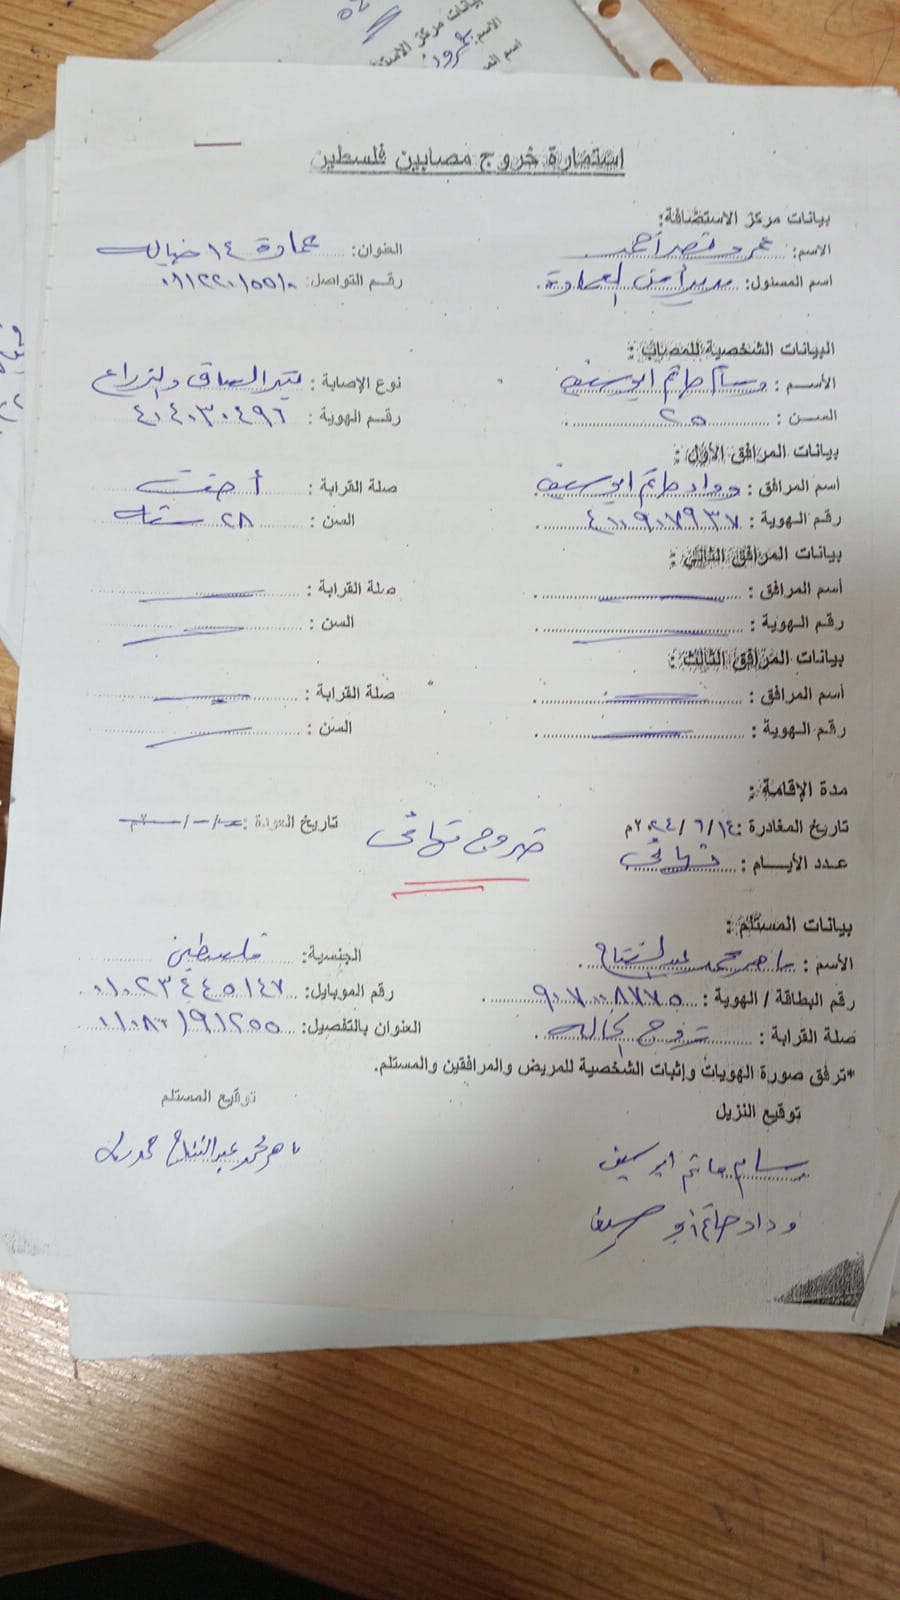 بيانات مركز الاستض
الاسم:
اسم الم
استمارة خروج مصابين فلسطين
بيانات مركز الاستضافة:
الاسم: عمرو نصر أحمد العنوان: عمارة ١٤
اسم المسئول: مدير أمن العمارة رقم التواصل:
البيانات الشخصية للمصاب :
الأسم : وسام حاتم ابوسيف نوع الإصابة : بتر الساق والذراع
السن : ٢٥ رقم الهوية : ٤٠٤٠٣٠٤٩٦
بيانات المرافق الأول :
اسم المرافق : وداد حاتم ابوسيف صلة القرابة : أخت
رقم الهوية : ٤٠٠٩٠٧٩٣٧ السن : ٢٨ سنة
بيانات المرافق الثاني :
أسم المرافق : صلة القرابة :
رقم الهوية : السن :
بيانات المرافق الثالث :
اسم المرافق : صلة القرابة :
رقم الهوية : السن :
مدة الإقامة :
تاريخ المغادرة : ١٤/ ٦ /٢٠٢٤م خروج نهائى تاريخ العودة :
عدد الأيام : نهائى
بيانات المستلم :
الأسم : ماهر محمد عبدالفتاح الجنسية: فلسطين
رقم البطاقة / الهوية : ٩٠٧٠٠٨٧٧٥ رقم الموبايل: ٠١٠٢٣٤٤٥١٤٧
صلة القرابة : زوج الخاله العنوان بالتفصيل: ٠١٠٨٠١٩١٢٥٥
*ترفق صورة الهويات وإثبات الشخصية للمريض والمرافقين والمستلم.
توقيع النزيل توقيع المستلم
وسام حاتم ابوسيف ماهر محمد عبدالفتاح
وداد حاتم أبو سيف